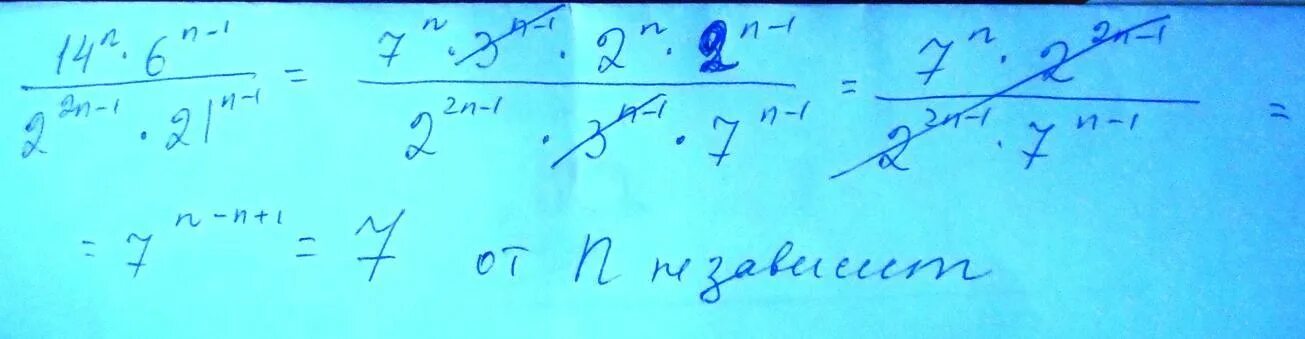 14^n · 6^(n-1) / 2^(2n-1) · 21^(n-1) = 7^n · 3^(n-1) · 2^n · 2^(n-1) / 2^(2n-1) · 3^(n-1) · 7^(n-1) = 7^n · 2^(2n-1) / 2^(2n-1) · 7^(n-1) =
= 7^(n-n+1) = 7 от n независит